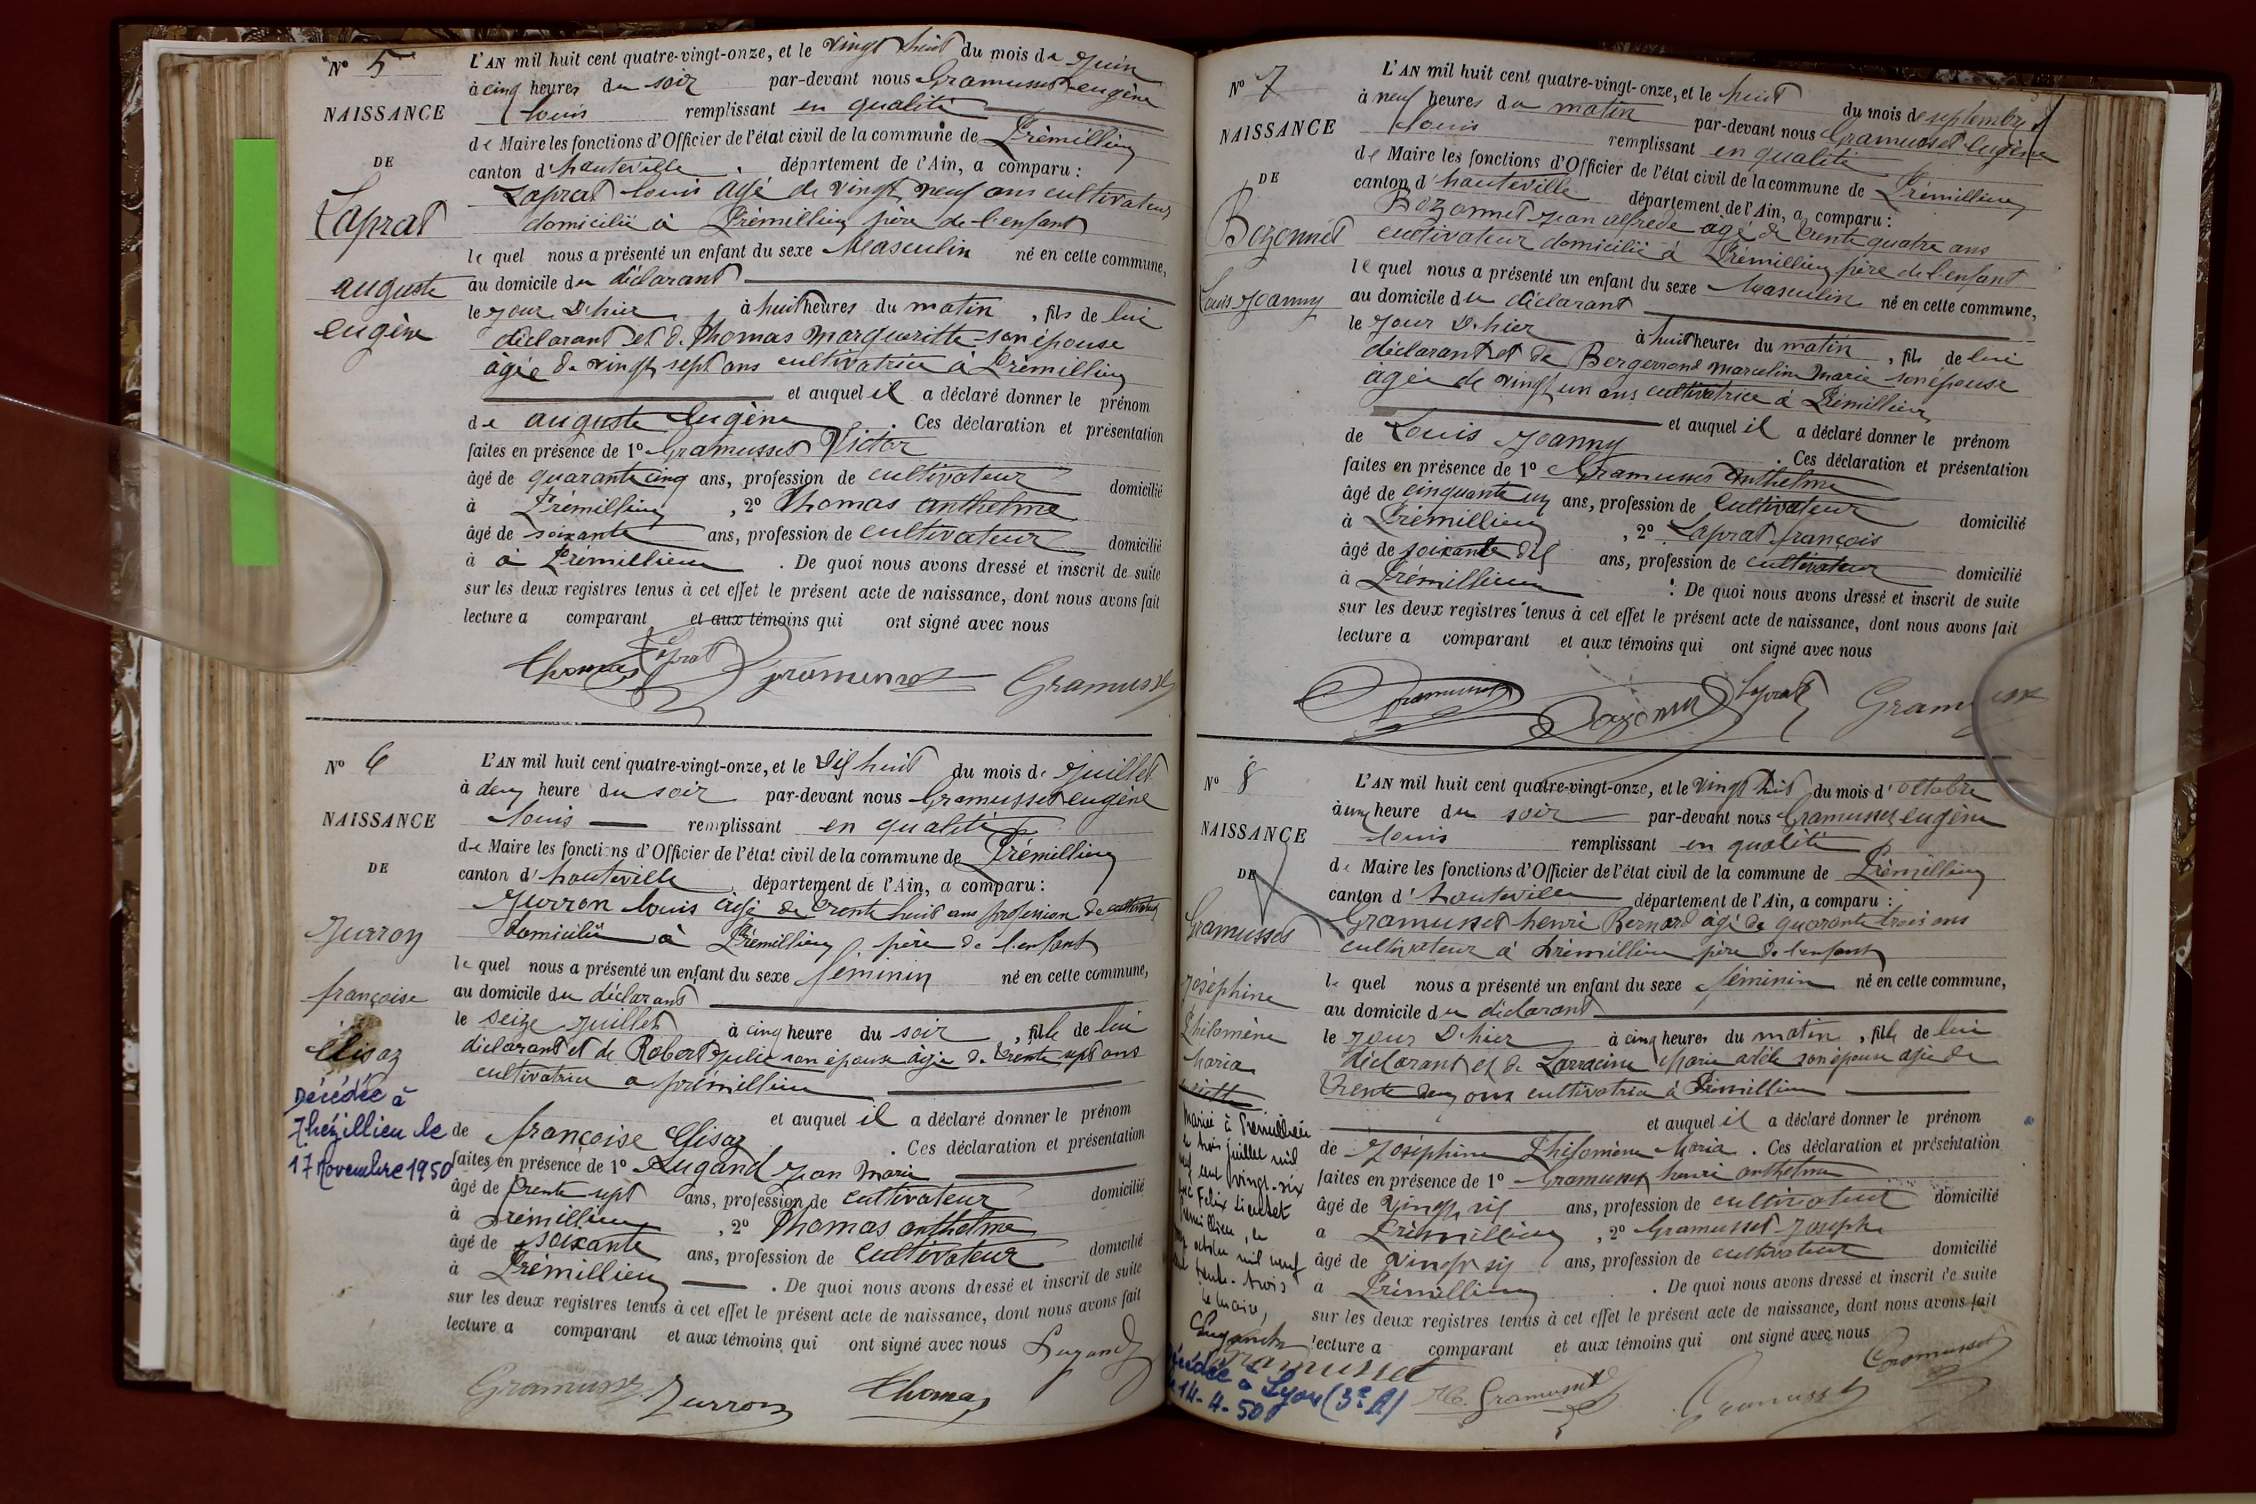 N° 5
NAISSANCE
DE
Laprat
auguste
eugène
L'AN mil huit cent quatre-vingt-onze, et le vingt huit du mois de Juin
à cinq heures du soir par-devant nous Gramusset eugène
louis remplissant en qualité
de Maire les fonctions d'Officier de l'état civil de la commune de Prémillieu
canton d'hauteville département de l'Ain, a comparu :
Laprat louis âgé de vingt neuf ans cultivateur
domicilié à Prémillieu père de l'enfant
le quel nous a présenté un enfant du sexe Masculin né en cette commune,
au domicile du déclarant
le jour d'hier à huit heures du matin , fils de lui
déclarant et de Thomas Margueritte son épouse
âgée de vingt sept ans cultivatrice à Prémillieu
et auquel il a déclaré donner le prénom
de auguste Eugène . Ces déclaration et présentation
faites en présence de 1° Gramusset Victor
âgé de quarante cinq ans, profession de cultivateur domicilié
à Prémillieu , 2° Thomas anthelme
âgé de soixante ans, profession de cultivateur domicilié
à à Prémillieu . De quoi nous avons dressé et inscrit de suite
sur les deux registres tenus à cet effet le présent acte de naissance, dont nous avons fait
lecture a comparant et aux témoins qui ont signé avec nous
Thomas Laprat Gramusset Gramusset
N° 6
NAISSANCE
DE
Jurron
françoise
Elisaz
Décédée à
Thézillieu le
17 Novembre 1950
L'AN mil huit cent quatre-vingt-onze, et le dix huit du mois de Juillet
à deux heure du soir par-devant nous Gramusset eugène
louis remplissant en qualité
de Maire les fonctions d'Officier de l'état civil de la commune de Prémillieu
canton d'hauteville département de l'Ain, a comparu :
Jurron louis âgé de trente huit ans profession de cultivateur
domicilié à Prémillieu père de l'enfant
le quel nous a présenté un enfant du sexe féminin né en cette commune,
au domicile du déclarant
le seize juillet à cinq heure du soir , fille de lui
déclarant et de Robert Julie son épouse âgée de trente sept ans
cultivatrice a prémillieu
et auquel il a déclaré donner le prénom
de françoise Elisaz . Ces déclaration et présentation
faites en présence de 1° Lugand Jean Marie
âgé de trente sept ans, profession de cultivateur domicilié
à Prémillieu , 2° Thomas anthelme
âgé de soixante ans, profession de cultivateur domicilié
à Prémillieu . De quoi nous avons dressé et inscrit de suite
sur les deux registres tenus à cet effet le présent acte de naissance, dont nous avons fait
lecture a comparant et aux témoins qui ont signé avec nous Lugand
Gramusset Jurron Thomas
N° 7
NAISSANCE
DE
Bozonnet
Louis Joanny
L'AN mil huit cent quatre-vingt-onze, et le huit du mois de septembre
à neuf heures du matin par-devant nous Gramusset Eugène
louis remplissant en qualité
de Maire les fonctions d'Officier de l'état civil de la commune de Prémillieu
canton d'hauteville département de l'Ain, a comparu :
Bozonnet jean alfrede âgé de trente quatre ans
cultivateur domicilié à Prémillieu père de l'enfant
le quel nous a présenté un enfant du sexe Masculin né en cette commune,
au domicile du déclarant
le jour d'hier à huit heures du matin , fils de lui
déclarant et de Bergerrand marceline Marie son épouse
âgée de vingt un ans cultivatrice à Prémillieu
et auquel il a déclaré donner le prénom
de Louis Joanny . Ces déclaration et présentation
faites en présence de 1° Gramusset Anthelme
âgé de cinquante un ans, profession de Cultivateur domicilié
à Prémillieu , 2° Laprat françois
âgé de soixante dix ans, profession de cultivateur domicilié
à Prémillieu . De quoi nous avons dressé et inscrit de suite
sur les deux registres tenus à cet effet le présent acte de naissance, dont nous avons fait
lecture a comparant et aux témoins qui ont signé avec nous
Gramusset Bozonnet Laprat Gramusset
N° 8
NAISSANCE
DE
Gramusset
Joséphine
Philomène
Maria
Mariée à Prémillieu
le trois juillet mil
neuf cent vingt-six
avec Félix
Prémillieu, le
octobre mil neuf
cent trente-trois
Le Maire,
Décédée à Lyon (3e A)
14-4-50
L'AN mil huit cent quatre-vingt-onze, et le vingt huit du mois d'octobre
à une heure du soir par-devant nous Gramusset eugène
louis remplissant en qualité
de Maire les fonctions d'Officier de l'état civil de la commune de Prémillieu
canton d'hauteville département de l'Ain, a comparu :
Gramusset henri Bernard âgé de quarante trois ans
cultivateur à Prémillieu père de l'enfant
le quel nous a présenté un enfant du sexe féminin né en cette commune,
au domicile du déclarant
le jour d'hier à cinq heures du matin , fille de lui
déclarant et de Larracine Marie adèle son épouse âgée de
trente deux ans cultivatrice à Prémillieu
et auquel il a déclaré donner le prénom
de Joséphine Philomène Maria . Ces déclaration et présentation
faites en présence de 1° Gramusset henri anthelme
âgé de vingt six ans, profession de cultivateur domicilié
a Prémillieu , 2° Gramusset Joseph
âgé de vingt six ans, profession de cultivateur domicilié
a Prémillieu . De quoi nous avons dressé et inscrit de suite
sur les deux registres tenus à cet effet le présent acte de naissance, dont nous avons fait
lecture a comparant et aux témoins qui ont signé avec nous
Gramusset Gramusset Gramusset Gramusset